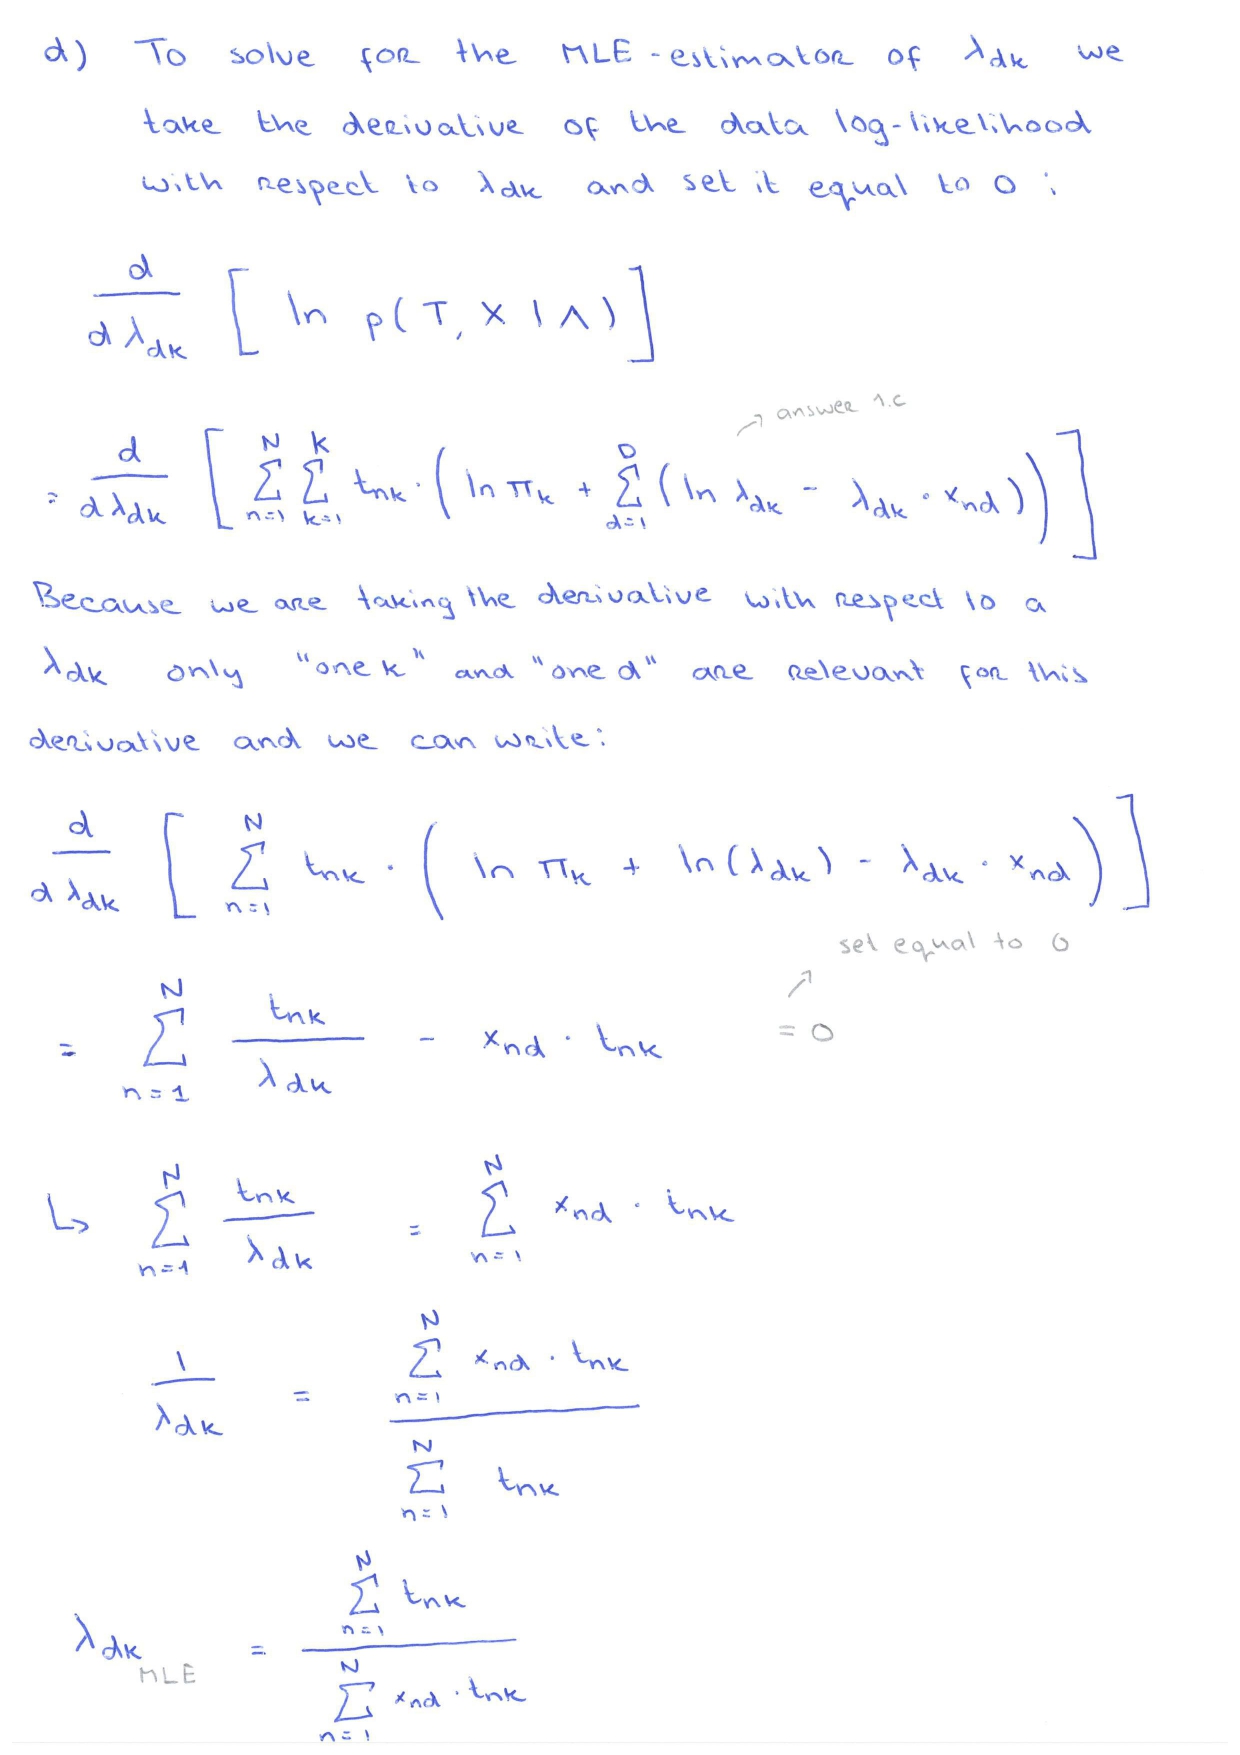 d) To solve for the MLE-estimator of λdk we
take the derivative of the data log-likelihood
with respect to λdk and set it equal to 0 :
d/dλdk [ ln p(T, X | Λ) ]
→ answer 1.c
= d/dλdk [ Σ_{n=1}^{N} Σ_{k=1}^{K} tnk · ( ln πk + Σ_{d=1}^{D} ( ln λdk - λdk · xnd ) ) ]
Because we are taking the derivative with respect to a
λdk only "one k" and "one d" are relevant for this
derivative and we can write:
d/dλdk [ Σ_{n=1}^{N} tnk · ( ln πk + ln(λdk) - λdk · xnd ) ]
→ set equal to 0
= Σ_{n=1}^{N} tnk/λdk - xnd · tnk = 0
↳ Σ_{n=1}^{N} tnk/λdk = Σ_{n=1}^{N} xnd · tnk
1/λdk = Σ_{n=1}^{N} xnd · tnk / Σ_{n=1}^{N} tnk
λdk MLE = Σ_{n=1}^{N} tnk / Σ_{n=1}^{N} xnd · tnk